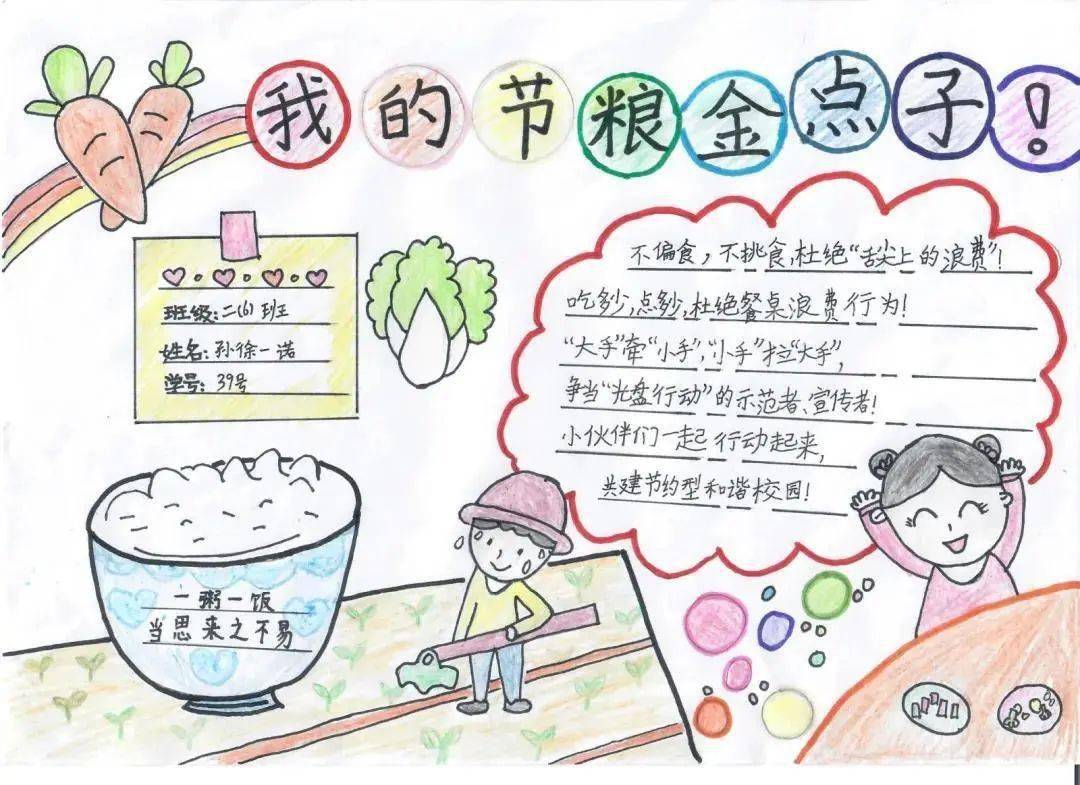 我的节粮金点子!
班级:二(6)班
姓名:孙徐一诺
学号:39号
不偏食,不挑食,杜绝“舌尖上的浪费”!
吃多少,点多少,杜绝餐桌浪费行为!
“大手”牵“小手”,“小手”拉“大手”,
争当“光盘行动”的示范者、宣传者!
小伙伴们一起行动起来,
共建节约型和谐校园!
一粥一饭
当思来之不易